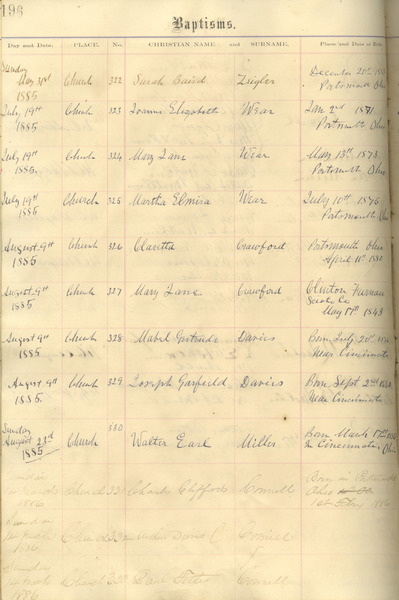 196
Baptisms.
Day and Date. PLACE. No. CHRISTIAN NAME. and SURNAME. Place and Date of
Sunday
May 31st Church 322 Sarah Baird Zeigler December 21st
1885 Portsmouth Ohio
July 19th Church 323 Joanna Elizabeth Wear Jan 2nd 1871
1885 Portsmouth Ohio
July 19th Church 324 Mary Jane Wear May 13th 1873
1885 Portsmouth Ohio
July 19th Church 325 Martha Elmira Wear July 10th 1876
1885 Portsmouth Ohio
August 9th Church 326 Claretta Crawford Portsmouth Ohio
1885 April 11th
August 9th Church 327 Mary Jane Crawford Clinton Furnace
1885 Scioto Co
May 17th 1843
August 9th Church 328 Mabel Gertrude Davies Born July 20th
1885 Near Cincinnati
August 9th Church 329 Joseph Garfield Davies Born Sept 2nd
1885 Near Cincinnati
Sunday 330
August 23d Church Walter Earl Miller Born March 17th
1885 in Cincinnati Ohio
Church 331 Charles Clifford Connell Born in
1886 Ohio
1st Feby 1886
Sunday
Church 332 Connell
1886
Sunday
Church 333 Connell
1886